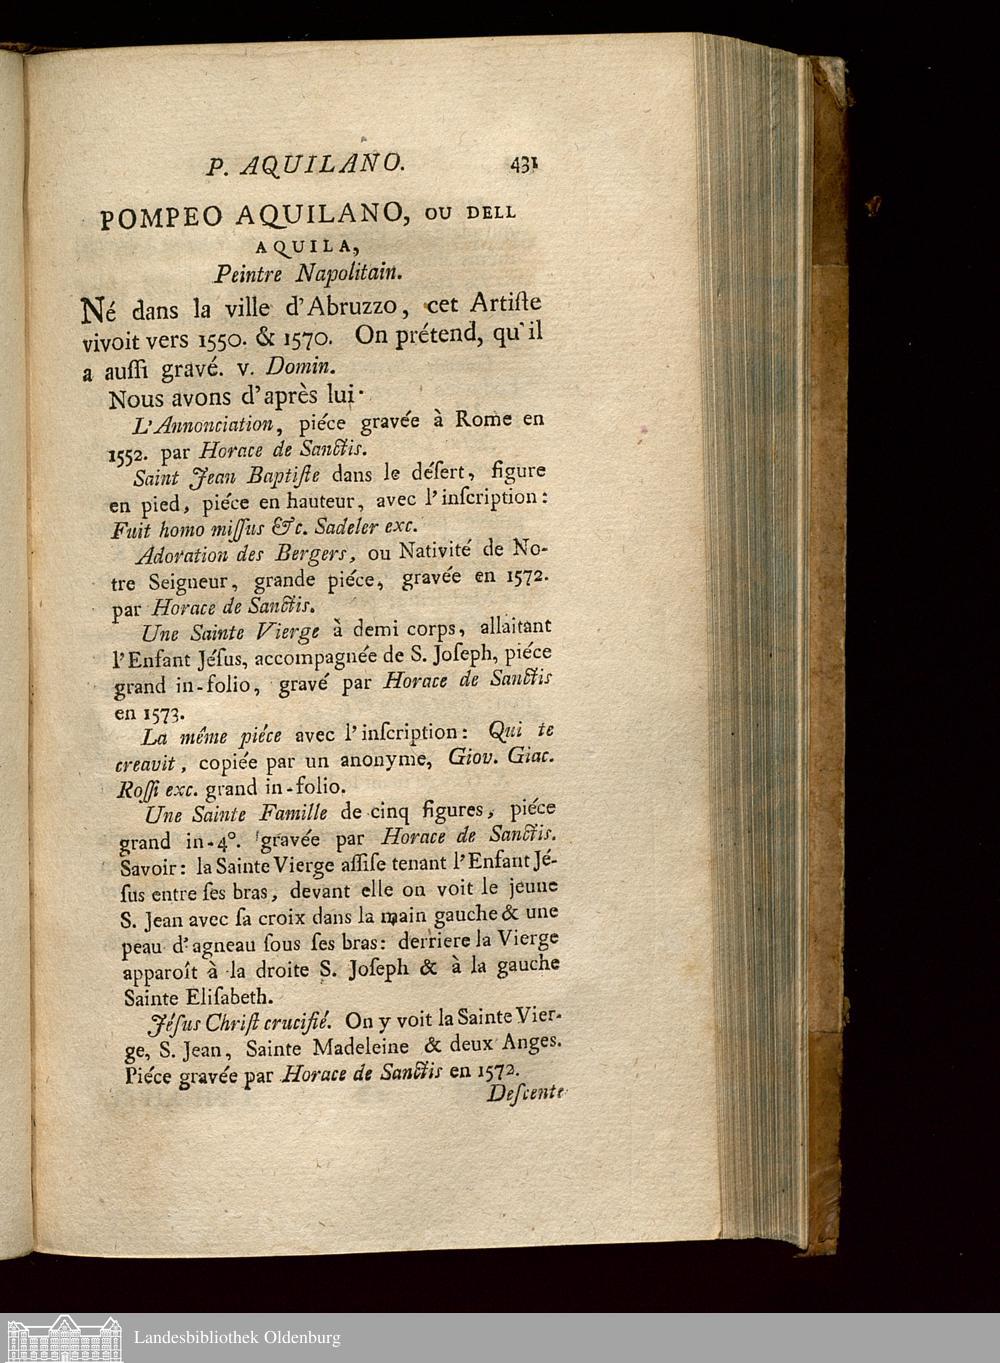 P. AQUILANO. 431
POMPEO AQUILANO, OU DELL
AQUILA,
Peintre Napolitain.
Né dans la ville d'Abruzzo, cet Artiſte
vivoit vers 1550. & 1570. On prétend, qu'il
a auſſi gravé. v. Domin.
Nous avons d'après lui·
L'Annonciation, piéce gravée à Rome en
1552. par Horace de Sanctis.
Saint Jean Baptiſte dans le déſert, figure
en pied, piéce en hauteur, avec l'inſcription:
Fuit homo miſſus &c. Sadeler exc.
Adoration des Bergers, ou Nativité de No-
tre Seigneur, grande piéce, gravée en 1572.
par Horace de Sanctis.
Une Sainte Vierge à demi corps, allaitant
l'Enfant Jéſus, accompagnée de S. Joſeph, piéce
grand in-folio, gravé par Horace de Sanctis
en 1573.
La même piéce avec l'inſcription: Qui te
creavit, copiée par un anonyme, Giov. Giac.
Roſſi exc. grand in-folio.
Une Sainte Famille de cinq figures, piéce
grand in-4°. gravée par Horace de Sanctis.
Savoir: la Sainte Vierge aſſiſe tenant l'Enfant Jé-
ſus entre ſes bras, devant elle on voit le jeune
S. Jean avec ſa croix dans la main gauche & une
peau d'agneau ſous ſes bras: derriere la Vierge
apparoît à la droite S. Joſeph & à la gauche
Sainte Eliſabeth.
Jéſus Chriſt crucifié. On y voit la Sainte Vier-
ge, S. Jean, Sainte Madeleine & deux Anges.
Piéce gravée par Horace de Sanctis en 1572.
Deſcente
Landesbibliothek Oldenburg